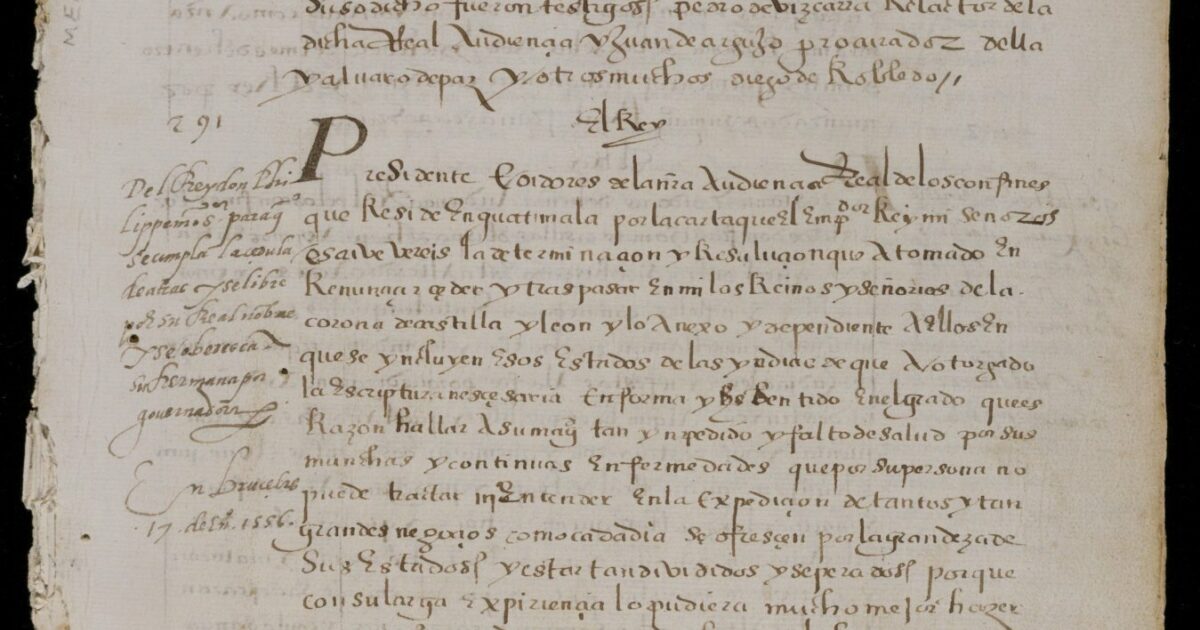 dusodicho fueron testigos pedro de vizcarra Relactor de la
dicha Real Audiençia y Juan de argujo procurador della
y alvaro de paz y otros muchos diego de Robledo //
El Rey
291
Presidente E oidores de la nra Audiençia Real de los confines
que Reside En guatimala por la carta que El Emp.dor Rey mi señor os
escrive vereis la determinaçion y Resuluçion que A tomado En
Renunçiar çeder y traspasar En mi los Reinos y señorios de la
corona de castilla y leon y lo Anexo y dependiente A ellos En
que se yncluyen Esos Estados de las yndias de que A otorgado
la Escriptura nesçesaria En forma y he sentido En el grado que es
Razon hallar A su mag tan ynpedido y falto de salud por sus
munchas y continuas Enfermedades que por su persona no
puede tractar ni Entender En la Expediçion de tantos y tan
grandes negoçios como cada dia se ofresçen por la grandeza de
sus Estados y estar tan divididos y seperados porque
con su larga Expiriençia lo pudiera mucho mejor hazer
Del Rey don Phi
lippe nro s.or para q
se cumpla la cedula
de atras y se libre
por su Real nombre
y se oberesca A
su hermana por
governadora
En bruçelas
17 de En.o 1556.